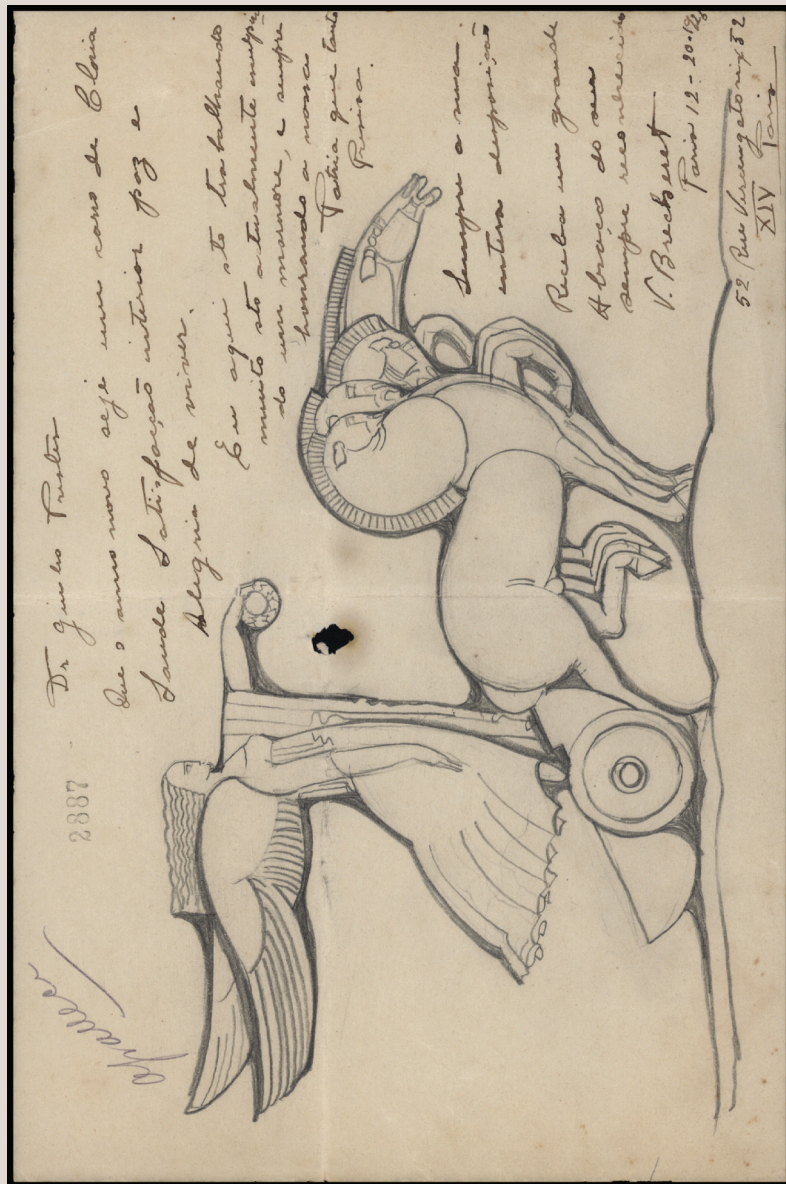 Dr Julio Prestes
Que o anno novo seje um carro de Gloria
Saude Satisfação interior paz e
Alegria de viver.
Eu aqui sto trabalhando
muito sto atualmente esculpin
do um marmore, e sempre
honrando a nossa
Patria que tanto
Precisa.
Sempre a sua
inteira disposição
Receba um grande
Abraço do seu
sempre reconhecido
V. Brecheret
Paris 12-20-
52 Rue Vercingetorix 52
XIV Paris
2887 -